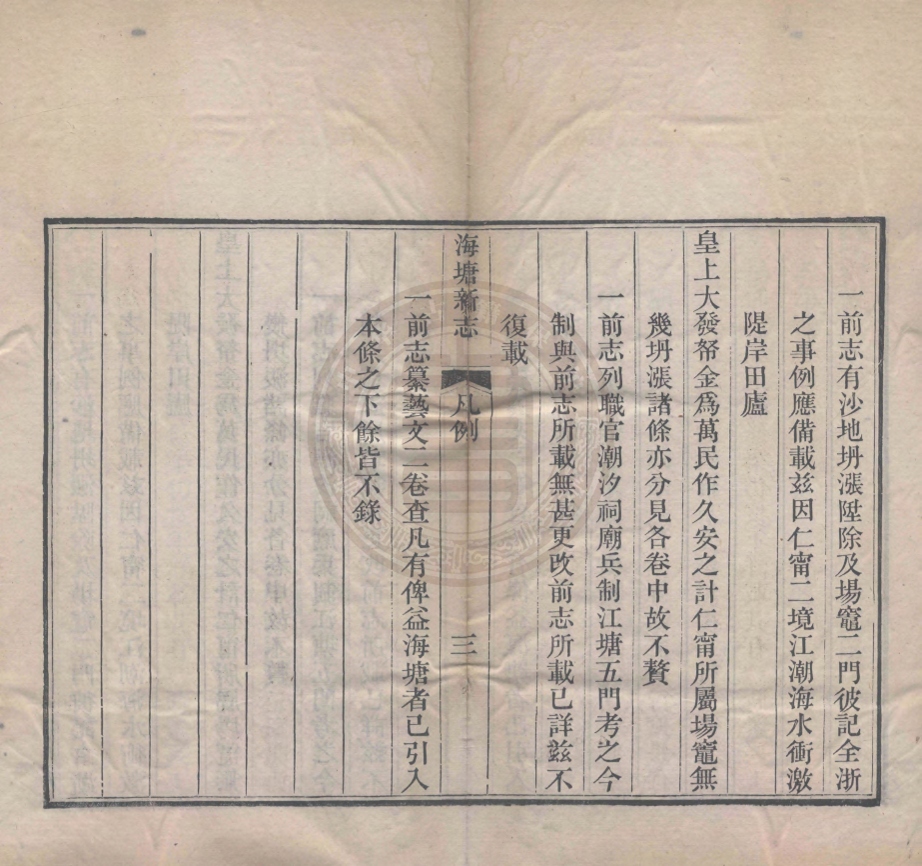 一前志有沙地坍漲陞除及場竈二門彼記全浙
之事例應備載玆因仁甯二境江潮海水衝激
隄岸田廬
皇上大發帑金爲萬民作久安之計仁甯所屬場竈無
幾坍漲諸條亦分見各卷中故不贅
一前志列職官潮汐祠廟兵制江塘五門考之今
制與前志所載無甚更改前志所載已詳玆不
復載
海塘新志 凡例 三
一前志纂藝文二卷查凡有俾益海塘者已引入
本條之下餘皆不錄